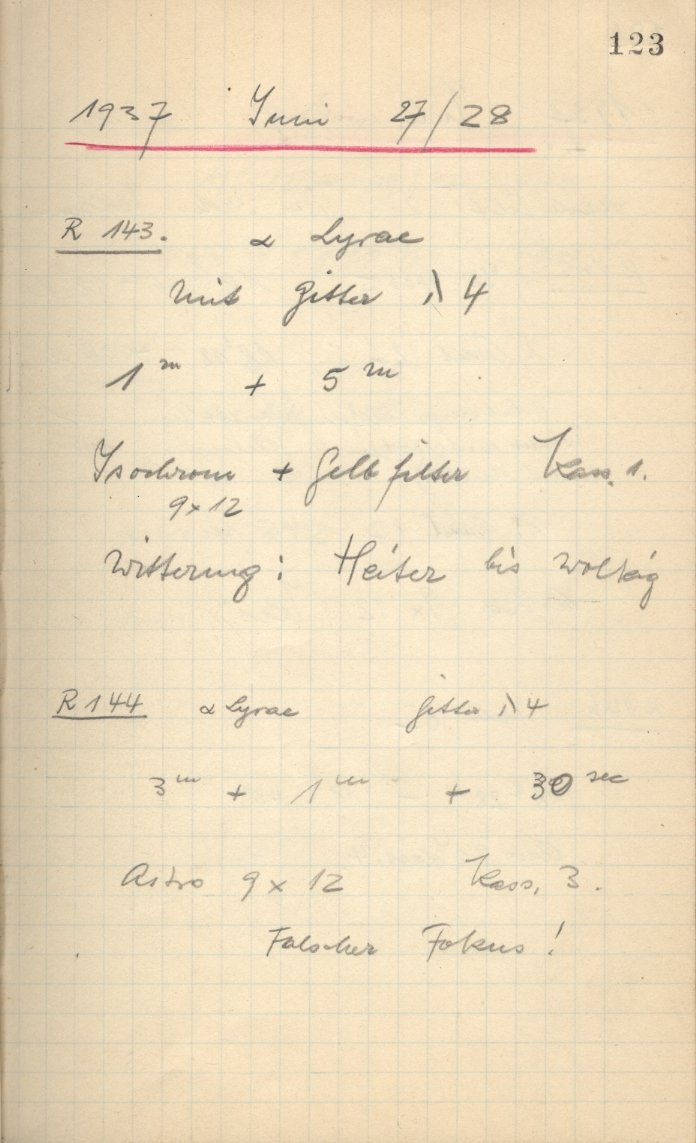 123
1937 Juni 27/28
R 143. α Lyrae
mit Gitter λ 4
1 m + 5 m
Isochrom + Gelbfilter Kass. 1.
9x12
Witterung: Heiter bis wolkig
R 144 α Lyrae Gitter λ 4
3 m + 1 m + 30 sec
Astro 9 x 12 Kass. 3.
Falscher Fokus!